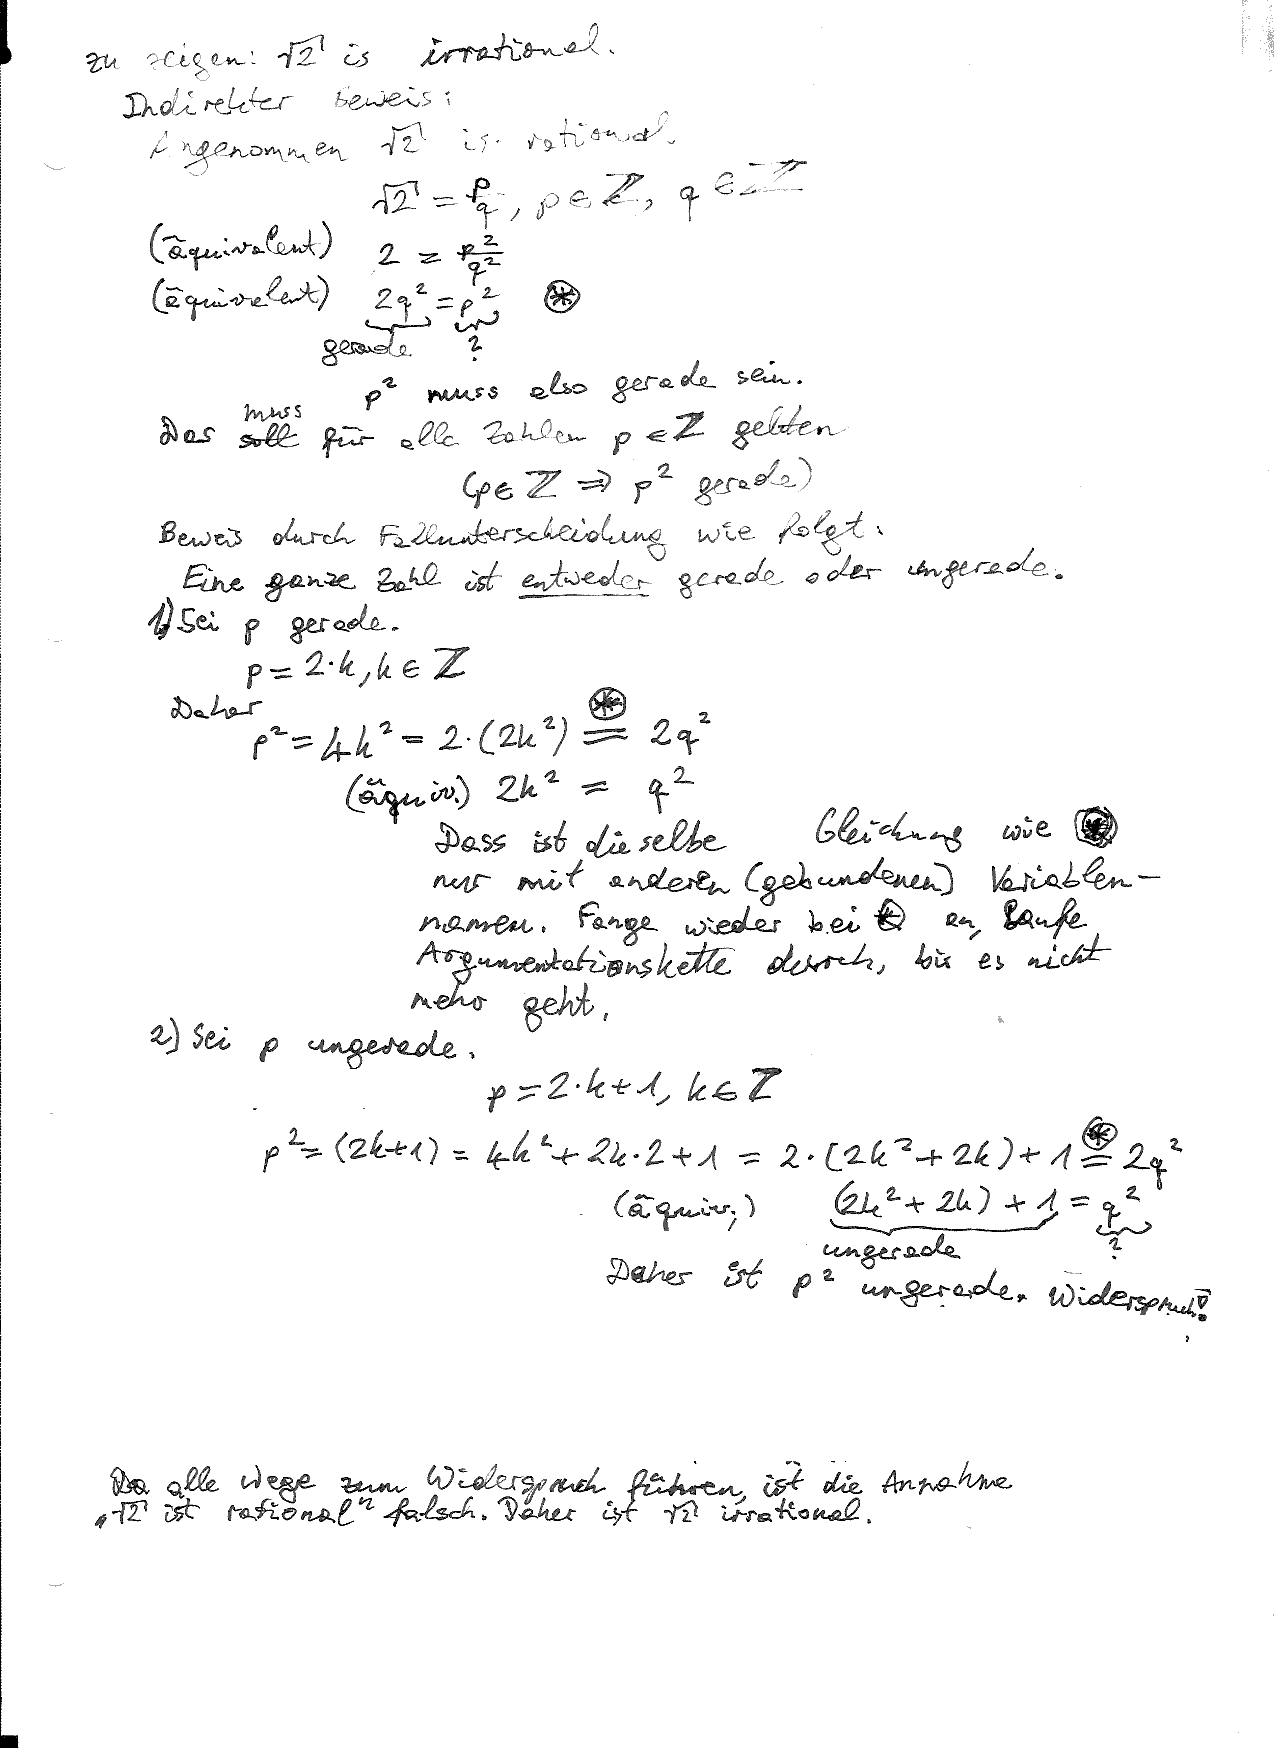 zu zeigen: √2 is irrational.
Indirekter Beweis:
Angenommen √2 is rational.
√2 = p/q, p ∈ ℤ, q ∈ ℤ
(äquivalent) 2 = p²/q²
(äquivalent) 2q² = p² ⊛
gerade ?
p² muss also gerade sein.
muss
Das soll für alle Zahlen p ∈ ℤ gelten
(p ∈ ℤ ⇒ p² gerade)
Beweis durch Fallunterscheidung wie folgt:
Eine ganze Zahl ist entweder gerade oder ungerade.
1) Sei p gerade.
p = 2·k, k ∈ ℤ
Daher
p² = 4k² = 2·(2k²) ⊛= 2q²
(äquiv.) 2k² = q²
Dass ist dieselbe Gleichung wie ⊛
nur mit anderen (gebundenen) Variablen-
namen. Fange wieder bei ⊛ an, laufe
Argumentationskette durch, bis es nicht
mehr geht.
2) Sei p ungerade.
p = 2·k+1, k ∈ ℤ
p² = (2k+1) = 4k² + 2k·2 + 1 = 2·(2k² + 2k) + 1 ⊛= 2q²
(äquiv.) (2k² + 2k) + 1 = q²
ungerade ?
Daher ist p² ungerade. Widerspruch!
Da alle Wege zum Widerspruch führen, ist die Annahme
„√2 ist rational" falsch. Daher ist √2 irrational.